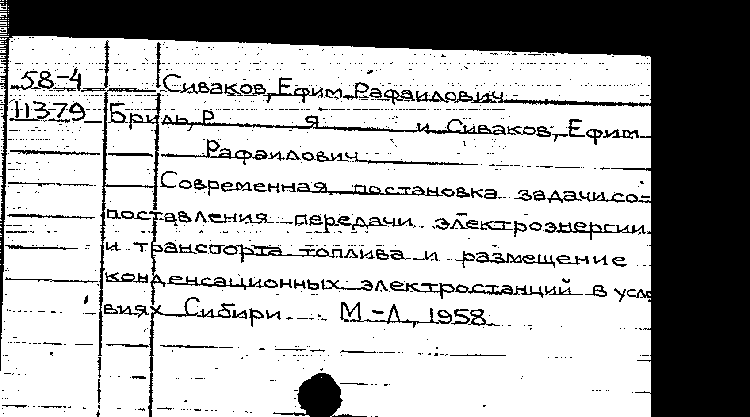 58-4 Сиваков, Ефим Рафаилович
11379 Бриль, Р Я и Сиваков, Ефим
Рафаилович
Современная постановка задачи со=
поставления передачи электроэнергии
и транспорта топлива и размещение
конденсационных электростанций в усло
виях Сибири М-Л, 1958